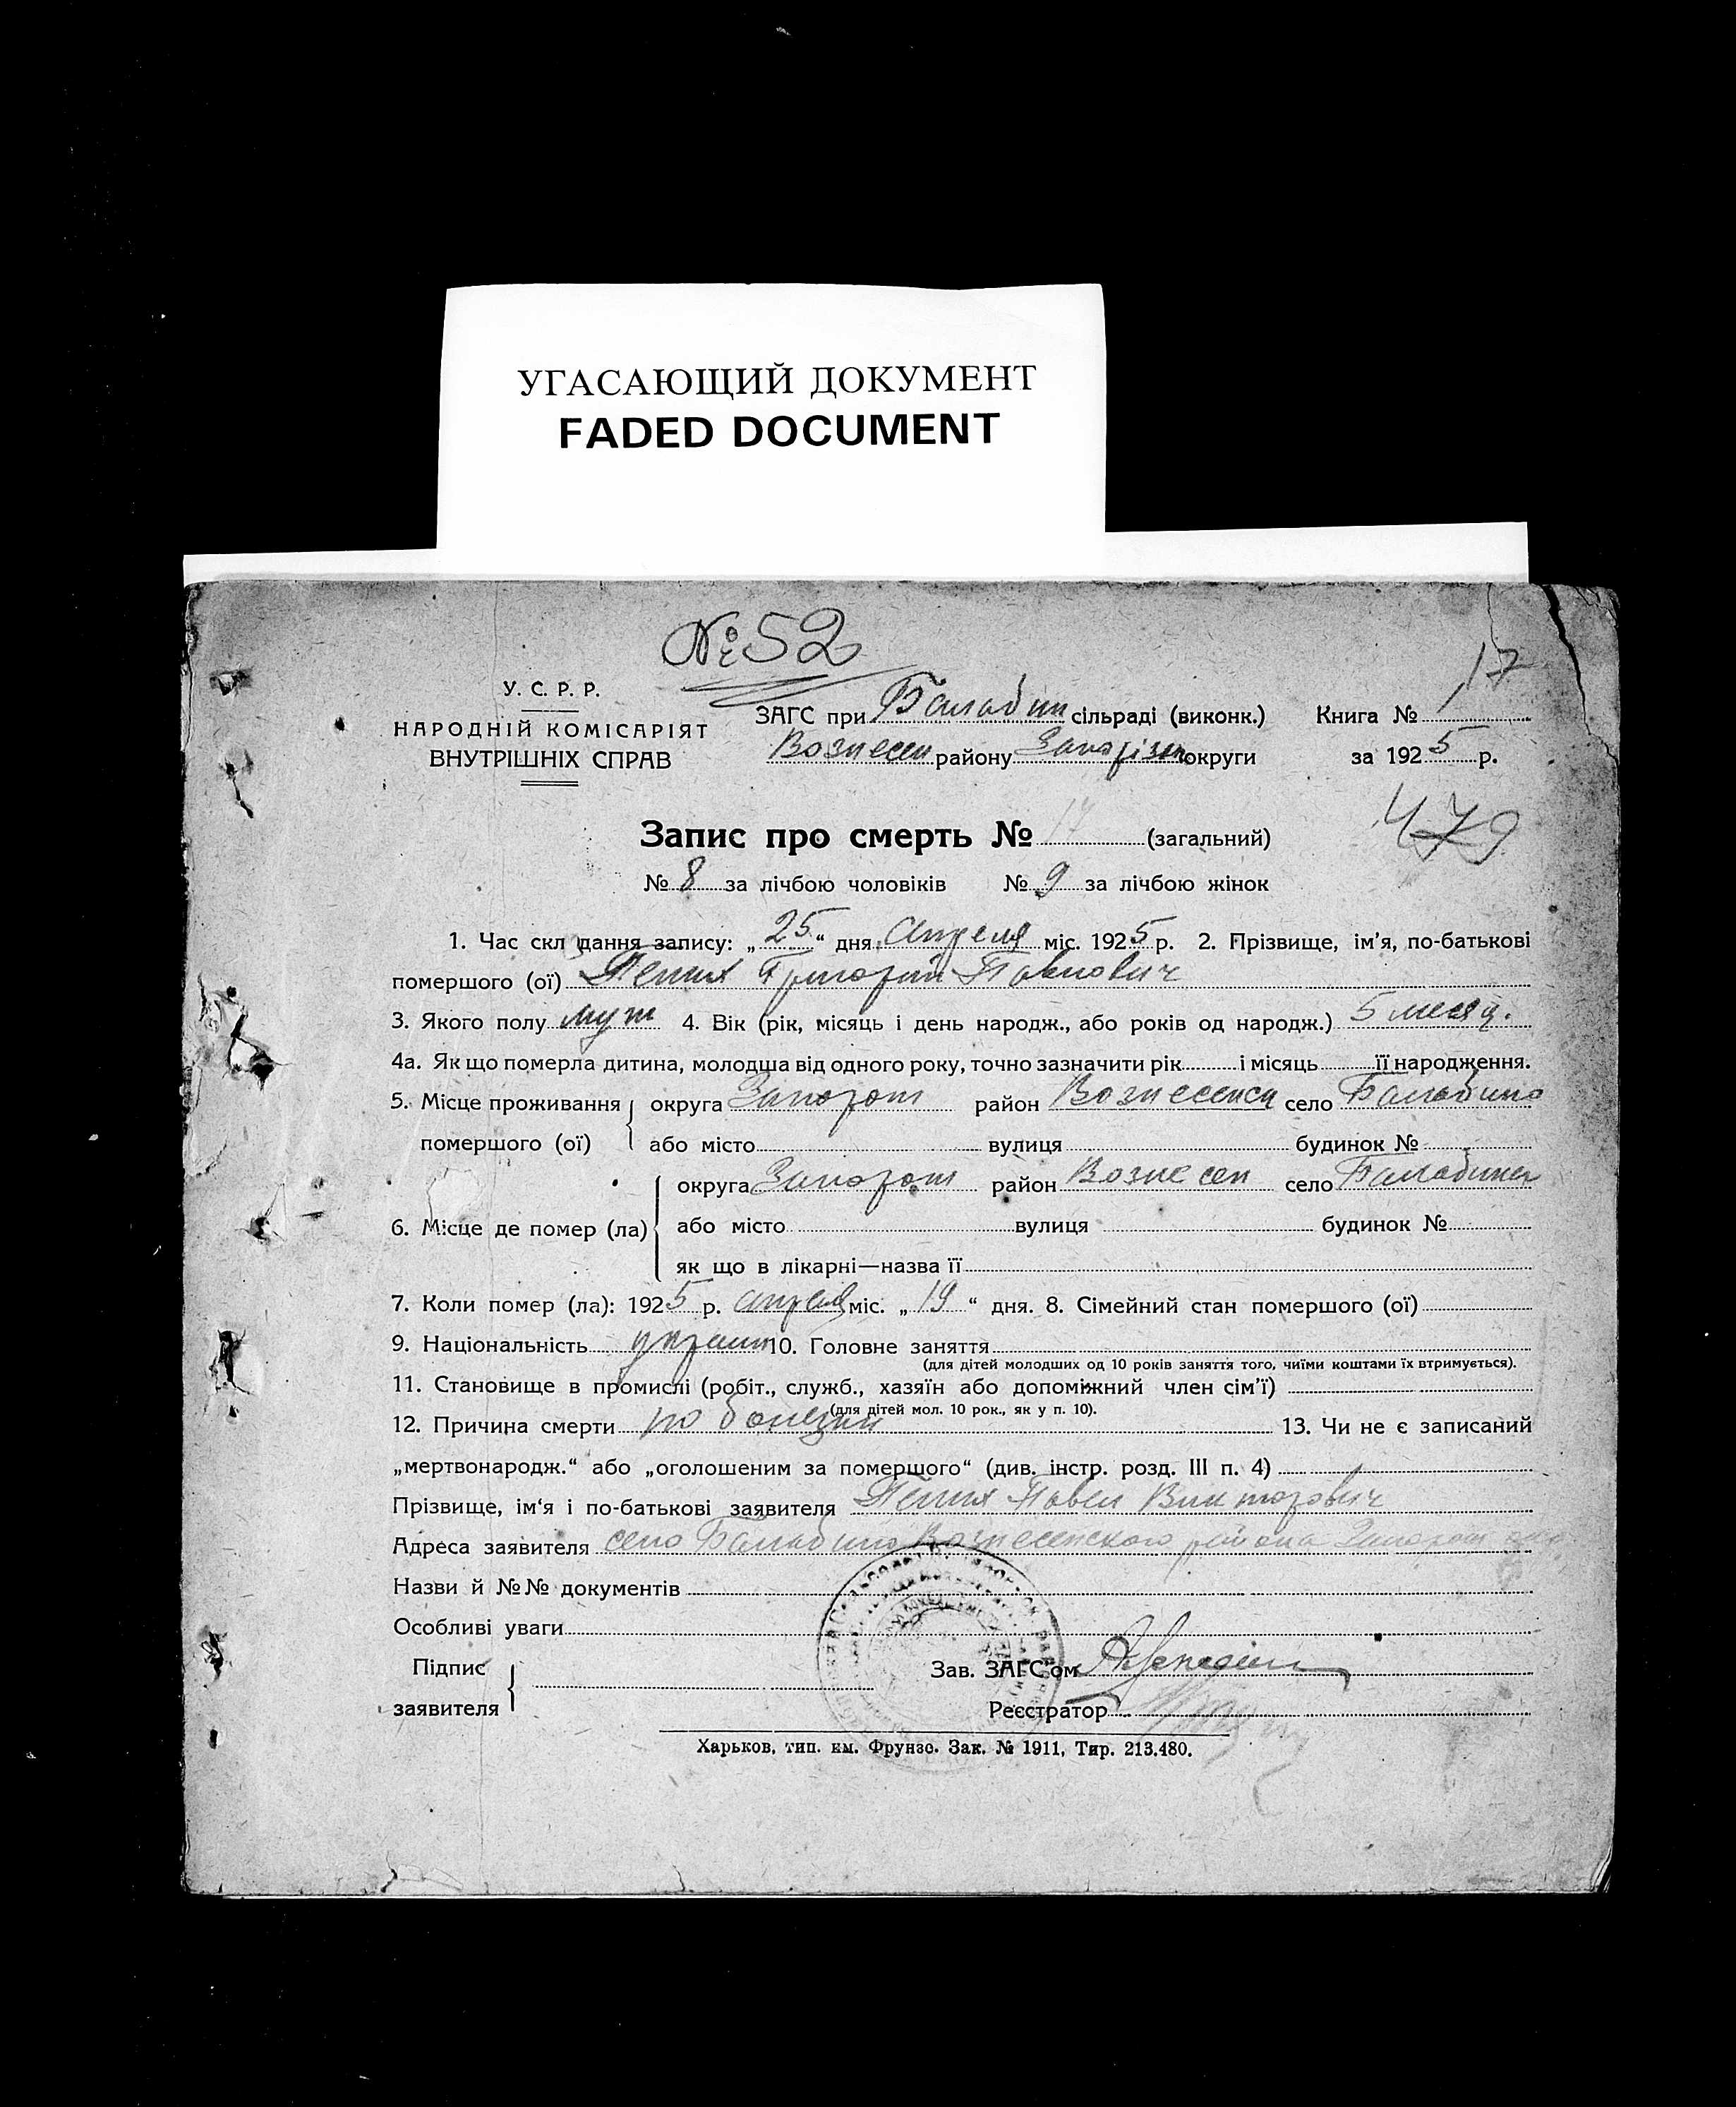 УГАСАЮЩИЙ ДОКУМЕНТ
FADED DOCUMENT
№ 52
17
У. С. Р. Р.
НАРОДНІЙ КОМІСАРІЯТ
ВНУТРІШНІХ СПРАВ
ЗАГС при Балабин сільраді (виконк.) Книга №
Вознесен району Запоріж округи за 1925 р.
479
Запис про смерть № 17 (загальний)
№ 8 за лічбою чоловіків № 9 за лічбою жінок
1. Час складання запису: „25“ дня Апреля міс. 1925 р. 2. Прізвище, ім'я, по-батькові
помершого (ої) Григорий Павлович
3. Якого полу муж 4. Вік (рік, місяць і день народж., або років од народж.) 5 месяц.
4а. Як що померла дитина, молодша від одного року, точно зазначити рік і місяць її народження.
5. Місце проживання помершого (ої) округа Запорож район Вознесенск село Балабино
або місто вулиця будинок №
6. Місце де помер (ла) округа Запорож район Вознесен село Балабино
або місто вулиця будинок №
як що в лікарні—назва її
7. Коли помер (ла): 1925 р. апреля міс. „19“ дня. 8. Сімейний стан помершого (ої)
9. Національність украин 10. Головне заняття
(для дітей молодших од 10 років заняття того, чиїми коштами їх втримується).
11. Становище в промислі (робіт., служб., хазяїн або допоміжний член сім'ї)
(для дітей мол. 10 рок., як у п. 10).
12. Причина смерти по болезни 13. Чи не є записаний
„мертвонародж.“ або „оголошеним за помершого“ (див. інстр. розд. III п. 4)
Прізвище, ім'я і по-батькові заявителя Павел Викторович
Адреса заявителя село Балабино Вознесенского района Запорож
Назви й №№ документів
Особливі уваги
Підпис заявителя
Зав. ЗАГС'ом
Реєстратор
Харьков, тип. им. Фрунзе. Зак. № 1911, Тир. 213.480.